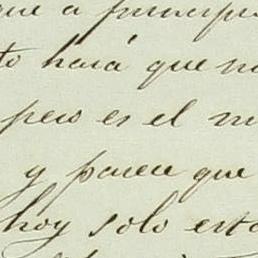 que a principi
to hará que no
pero es el m
y parece que
hoy solo esta